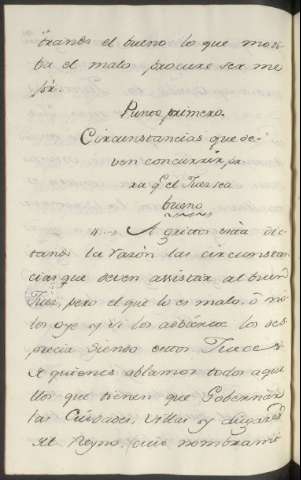 brando el bueno lo que mos
ba el malo procure ser me
jor.
Punto primero.
Circunstancias que de
ven concurrir pa
ra q.e el Juez sea
bueno
A gritos esta dic
tando la razón las circunstan
cias que deven assistar al buen
Juez, pero el que lo es malo, ô no
los oye ô si los los des
precia siendo estos Jueces
de quienes ablamos todos aque
llos que tienen que Gobernar
las Ciudades, Villas y Lugares
del Reyno, cuio nombrami